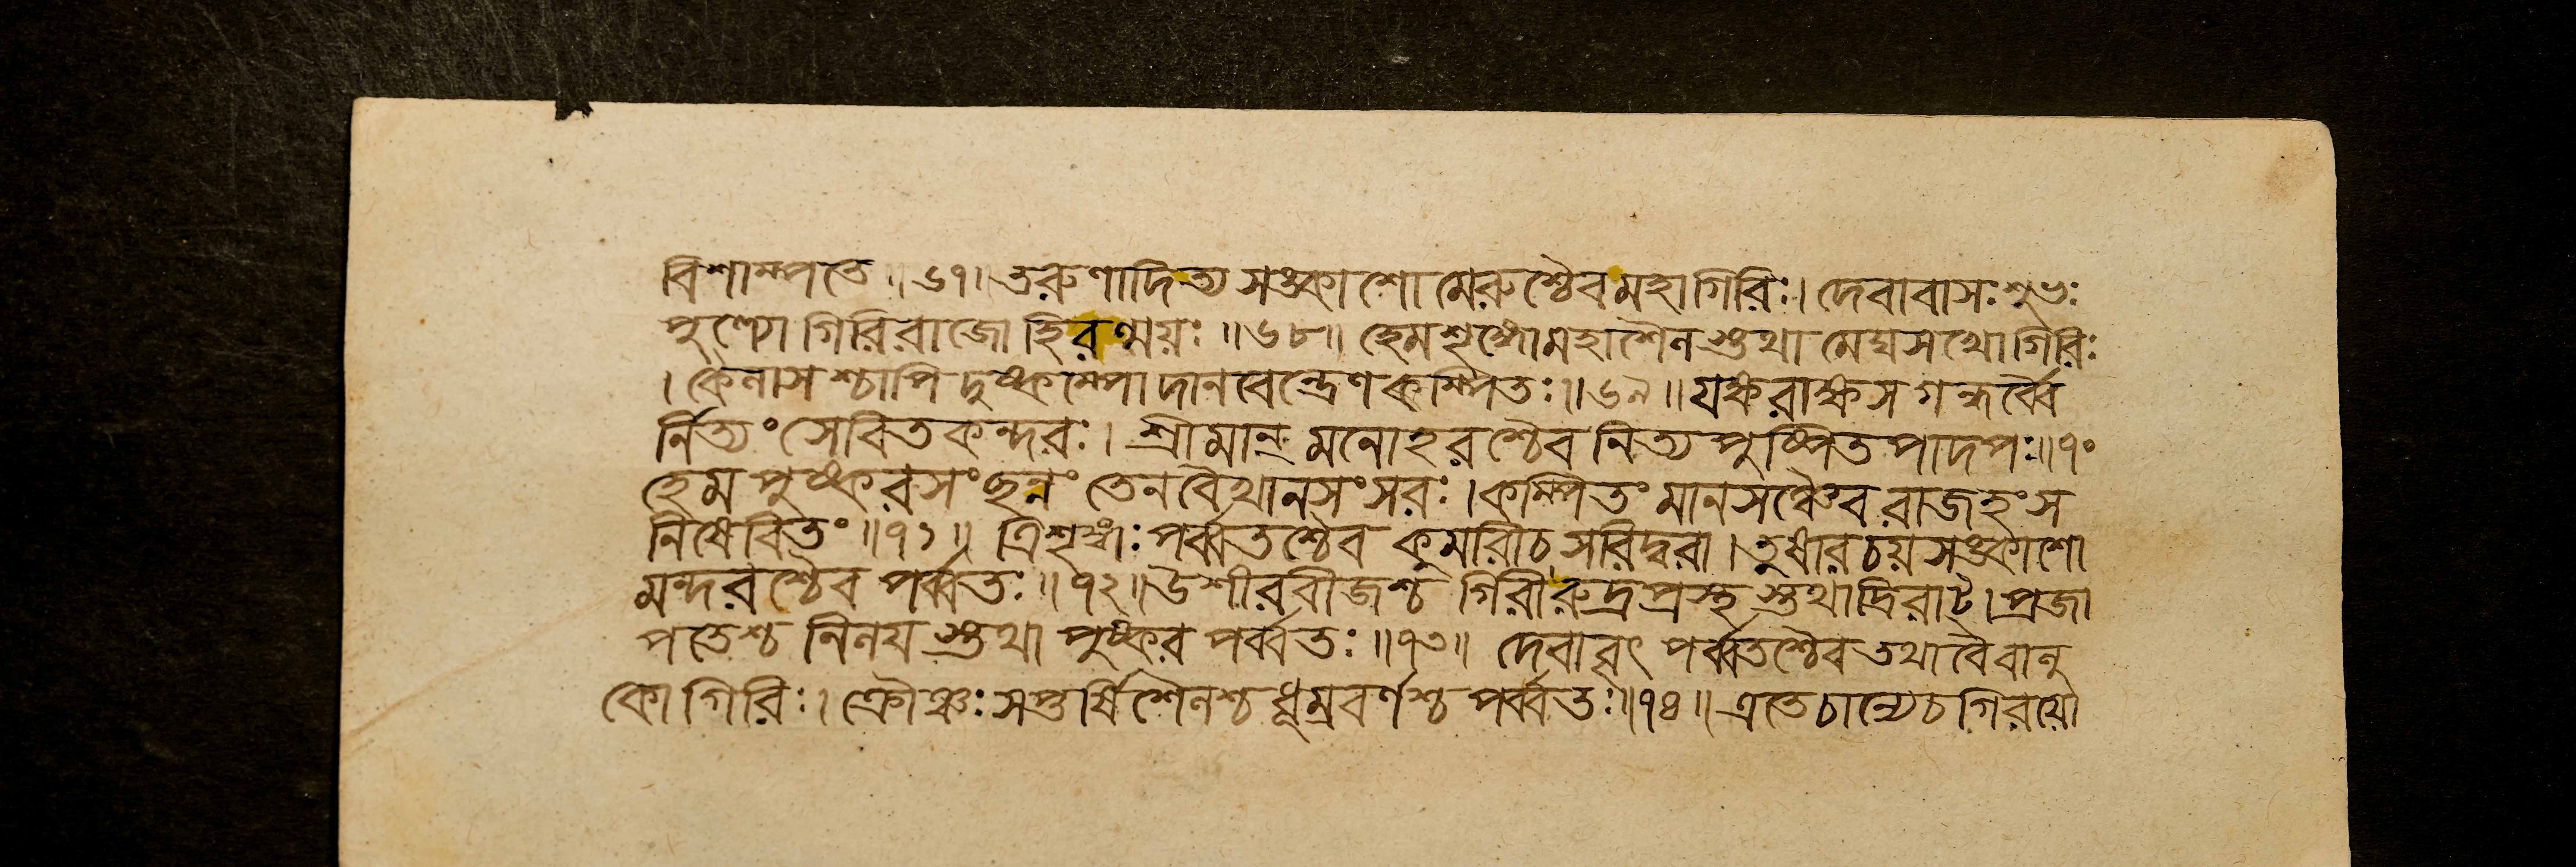 বিশাম্পতে ॥ ৬৭। তরুণাদিত্য সঙ্কাশো মেরুশ্চৈব মহাগিরিঃ। দেবাবাসঃ শুভঃ
পুণ্যো গিরিরাজো হিরণ্ময়ঃ ॥ ৬৮॥ হেমশৃঙ্গোমহাশৈল স্তথা মেঘসখো গিরিঃ
। কৈলাসশ্চাপি দুষ্কম্পো দানবেন্দ্রেণ কম্পিতঃ ॥ ৬৯ ॥ যক্ষরাক্ষস গন্ধর্ব্বৈ
র্নিত্যং সেবিতকন্দরঃ। শ্রীমান্ মনোহরশ্চৈব নিত্য পুষ্পিত পাদপঃ॥ ৭০
হেম পুষ্করসংছন্নং তেন বৈখানসংসরঃ। কম্পিতং মানসঞ্চৈব রাজহংস
নিষেবিতং ॥ ৭১ ॥ ত্রিশৃঙ্গঃ পর্ব্বতশ্চৈব কুমারীচ সরিদ্বরা। তুষারচয় সঙ্কাশো
মন্দরশ্চৈব পর্ব্বতঃ ॥ ৭২॥ উশীরবীজশ্চ গিরীরুদ্রপ্রস্থ স্তথাদ্রিরাট্। প্রজা
পতেশ্চ নিলয় স্তথা পুষ্কর পর্ব্বতঃ ॥ ৭৩॥ দেবাবৃৎ পর্ব্বতশ্চৈব তথা বৈবালু
কো গিরিঃ। ক্রৌঞ্চঃ সপ্তর্ষিশৈলশ্চ ধূম্রবর্ণশ্চ পর্ব্বতঃ॥ ৭৪ ॥ এতে চান্যেচ গিরয়ো